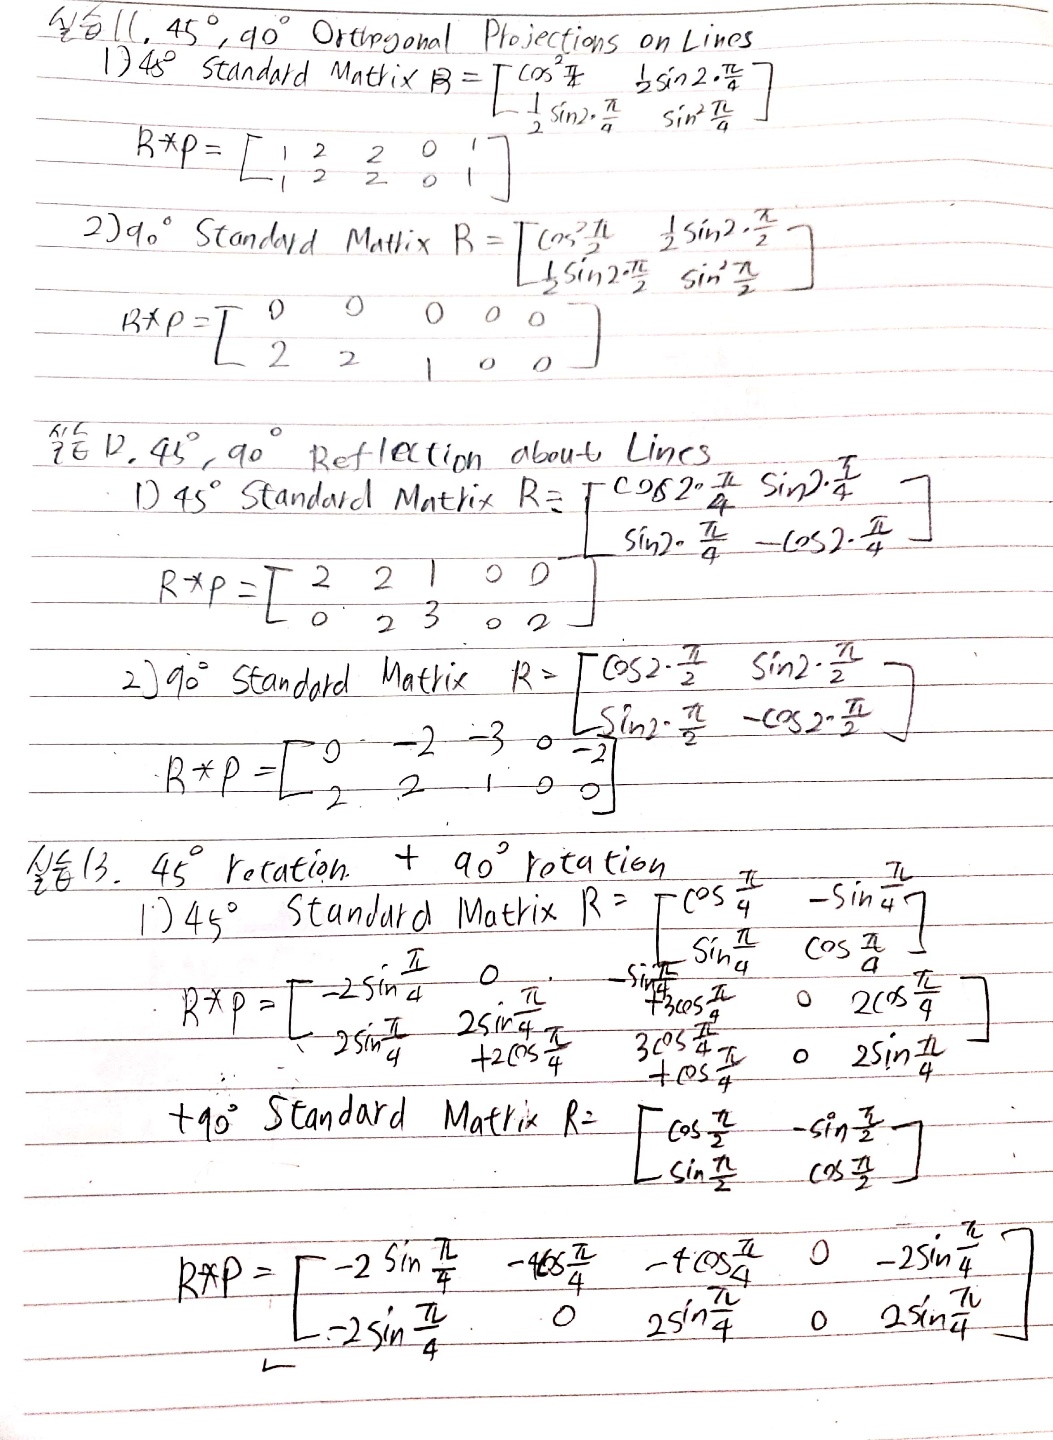 실습11. 45°, 90° Orthogonal Projections on Lines
1) 45° Standard Matrix R = [ cos²π/4 1/2 sin2·π/4
1/2 sin2·π/4 sin²π/4 ]
R*P = [ 1 2 2 0 1
1 2 2 0 1 ]
2) 90° Standard Matrix R = [ cos²π/2 1/2 sin2·π/2
1/2 sin2·π/2 sin²π/2 ]
R*P = [ 0 0 0 0 0
2 2 1 0 0 ]
실습12. 45°, 90° Reflection about Lines
1) 45° Standard Matrix R = [ cos2·π/4 sin2·π/4
sin2·π/4 -cos2·π/4 ]
R*P = [ 2 2 1 0 0
0 2 3 0 2 ]
2) 90° Standard Matrix R = [ cos2·π/2 sin2·π/2
sin2·π/2 -cos2·π/2 ]
R*P = [ 0 -2 -3 0 -2
2 2 1 0 0 ]
실습13. 45° rotation + 90° rotation
1) 45° Standard Matrix R = [ cos π/4 -sin π/4
sin π/4 cos π/4 ]
R*P = [ -2sin π/4 0 -sin π/4 +3cos π/4 0 2cos π/4
2sin π/4 2sin π/4 +2cos π/4 3cos π/4 +cos π/4 0 2sin π/4 ]
+90° Standard Matrix R = [ cos π/2 -sin π/2
sin π/2 cos π/2 ]
R*P = [ -2sin π/4 -4cos π/4 -4cos π/4 0 -2sin π/4
-2sin π/4 0 2sin π/4 0 2sin π/4 ]